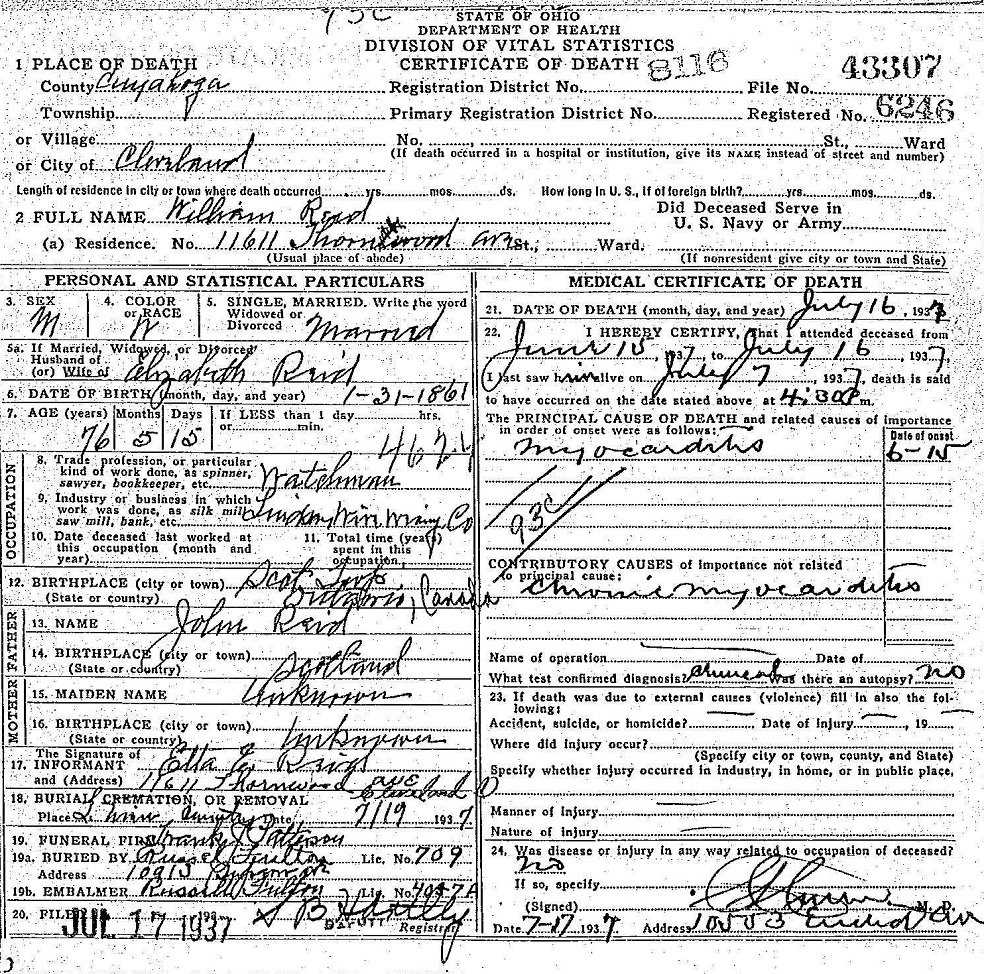 STATE OF OHIO
DEPARTMENT OF HEALTH
DIVISION OF VITAL STATISTICS
CERTIFICATE OF DEATH 8116 43307
1 PLACE OF DEATH
County Cuyahoga Registration District No. File No.
Township Primary Registration District No. Registered No. 6246
or Village No. St., Ward
or City of Cleveland (If death occurred in a hospital or institution, give its NAME instead of street and number)
Length of residence in city or town where death occurred yrs. mos. ds. How long in U. S., if of foreign birth? yrs. mos. ds.
2 FULL NAME William Reid Did Deceased Serve in U. S. Navy or Army
(a) Residence. No. 11611 Thornwood Ave St., Ward.
(Usual place of abode) (If nonresident give city or town and State)
PERSONAL AND STATISTICAL PARTICULARS
3. SEX M
4. COLOR or RACE W
5. SINGLE, MARRIED. Write the word Widowed or Divorced Married
5a. If Married, Widowed, or Divorced
Husband of
(or) Wife of Elizabeth Reid
6. DATE OF BIRTH (month, day, and year) 1-31-1861
7. AGE (years) Months Days If LESS than 1 day hrs.
76 5 15 or min.
OCCUPATION
8. Trade profession, or particular
kind of work done, as spinner,
sawyer, bookkeeper, etc. Watchman
9. Industry or business in which
work was done, as silk mill
saw mill, bank, etc. Co
10. Date deceased last worked at
this occupation (month and
year)
11. Total time (years)
spent in this
occupation
12. BIRTHPLACE (city or town)
(State or country) Ontario, Canada
FATHER
13. NAME John Reid
14. BIRTHPLACE (city or town)
(State or country) Scotland
MOTHER
15. MAIDEN NAME Unknown
16. BIRTHPLACE (city or town)
(State or country) Unknown
17. The Signature of
INFORMANT Ella E Reid
and (Address) 11611 Thornwood ave Cleveland O
18. BURIAL, CREMATION, OR REMOVAL
Place Date 7/19 1937
19. FUNERAL FIRM Frank Patterson
19a. BURIED BY Russel Fulton Lic. No. 709
Address 10915
19b. EMBALMER Russell Fulton Lic. No.
20. FILED JUL 17 1937 DEPUTY Registrar
MEDICAL CERTIFICATE OF DEATH
21. DATE OF DEATH (month, day, and year) July 16, 1937
22. I HEREBY CERTIFY, That I attended deceased from
June 15, 1937, to July 16 1937,
I last saw him alive on July 7, 1937, death is said
to have occurred on the date stated above at 4:30 P. m.
The PRINCIPAL CAUSE OF DEATH and related causes of importance
in order of onset were as follows: Date of onset
myocarditis 6-15
93c
CONTRIBUTORY CAUSES of importance not related
to principal cause:
chronic myocarditis
Name of operation Date of
What test confirmed diagnosis? clinical Was there an autopsy? no
23. If death was due to external causes (violence) fill in also the following:
Accident, suicide, or homicide? Date of injury , 19
Where did injury occur?
(Specify city or town, county, and State)
Specify whether injury occurred in industry, in home, or in public place.
Manner of injury
Nature of injury
24. Was disease or injury in any way related to occupation of deceased?
no
If so, specify
(Signed) M. D.
Date 7-17 1937 Address 10503 Euclid Ave